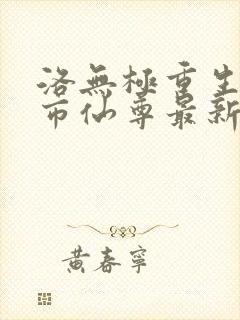 洛無極重生
市仙尊最新
黄春寧